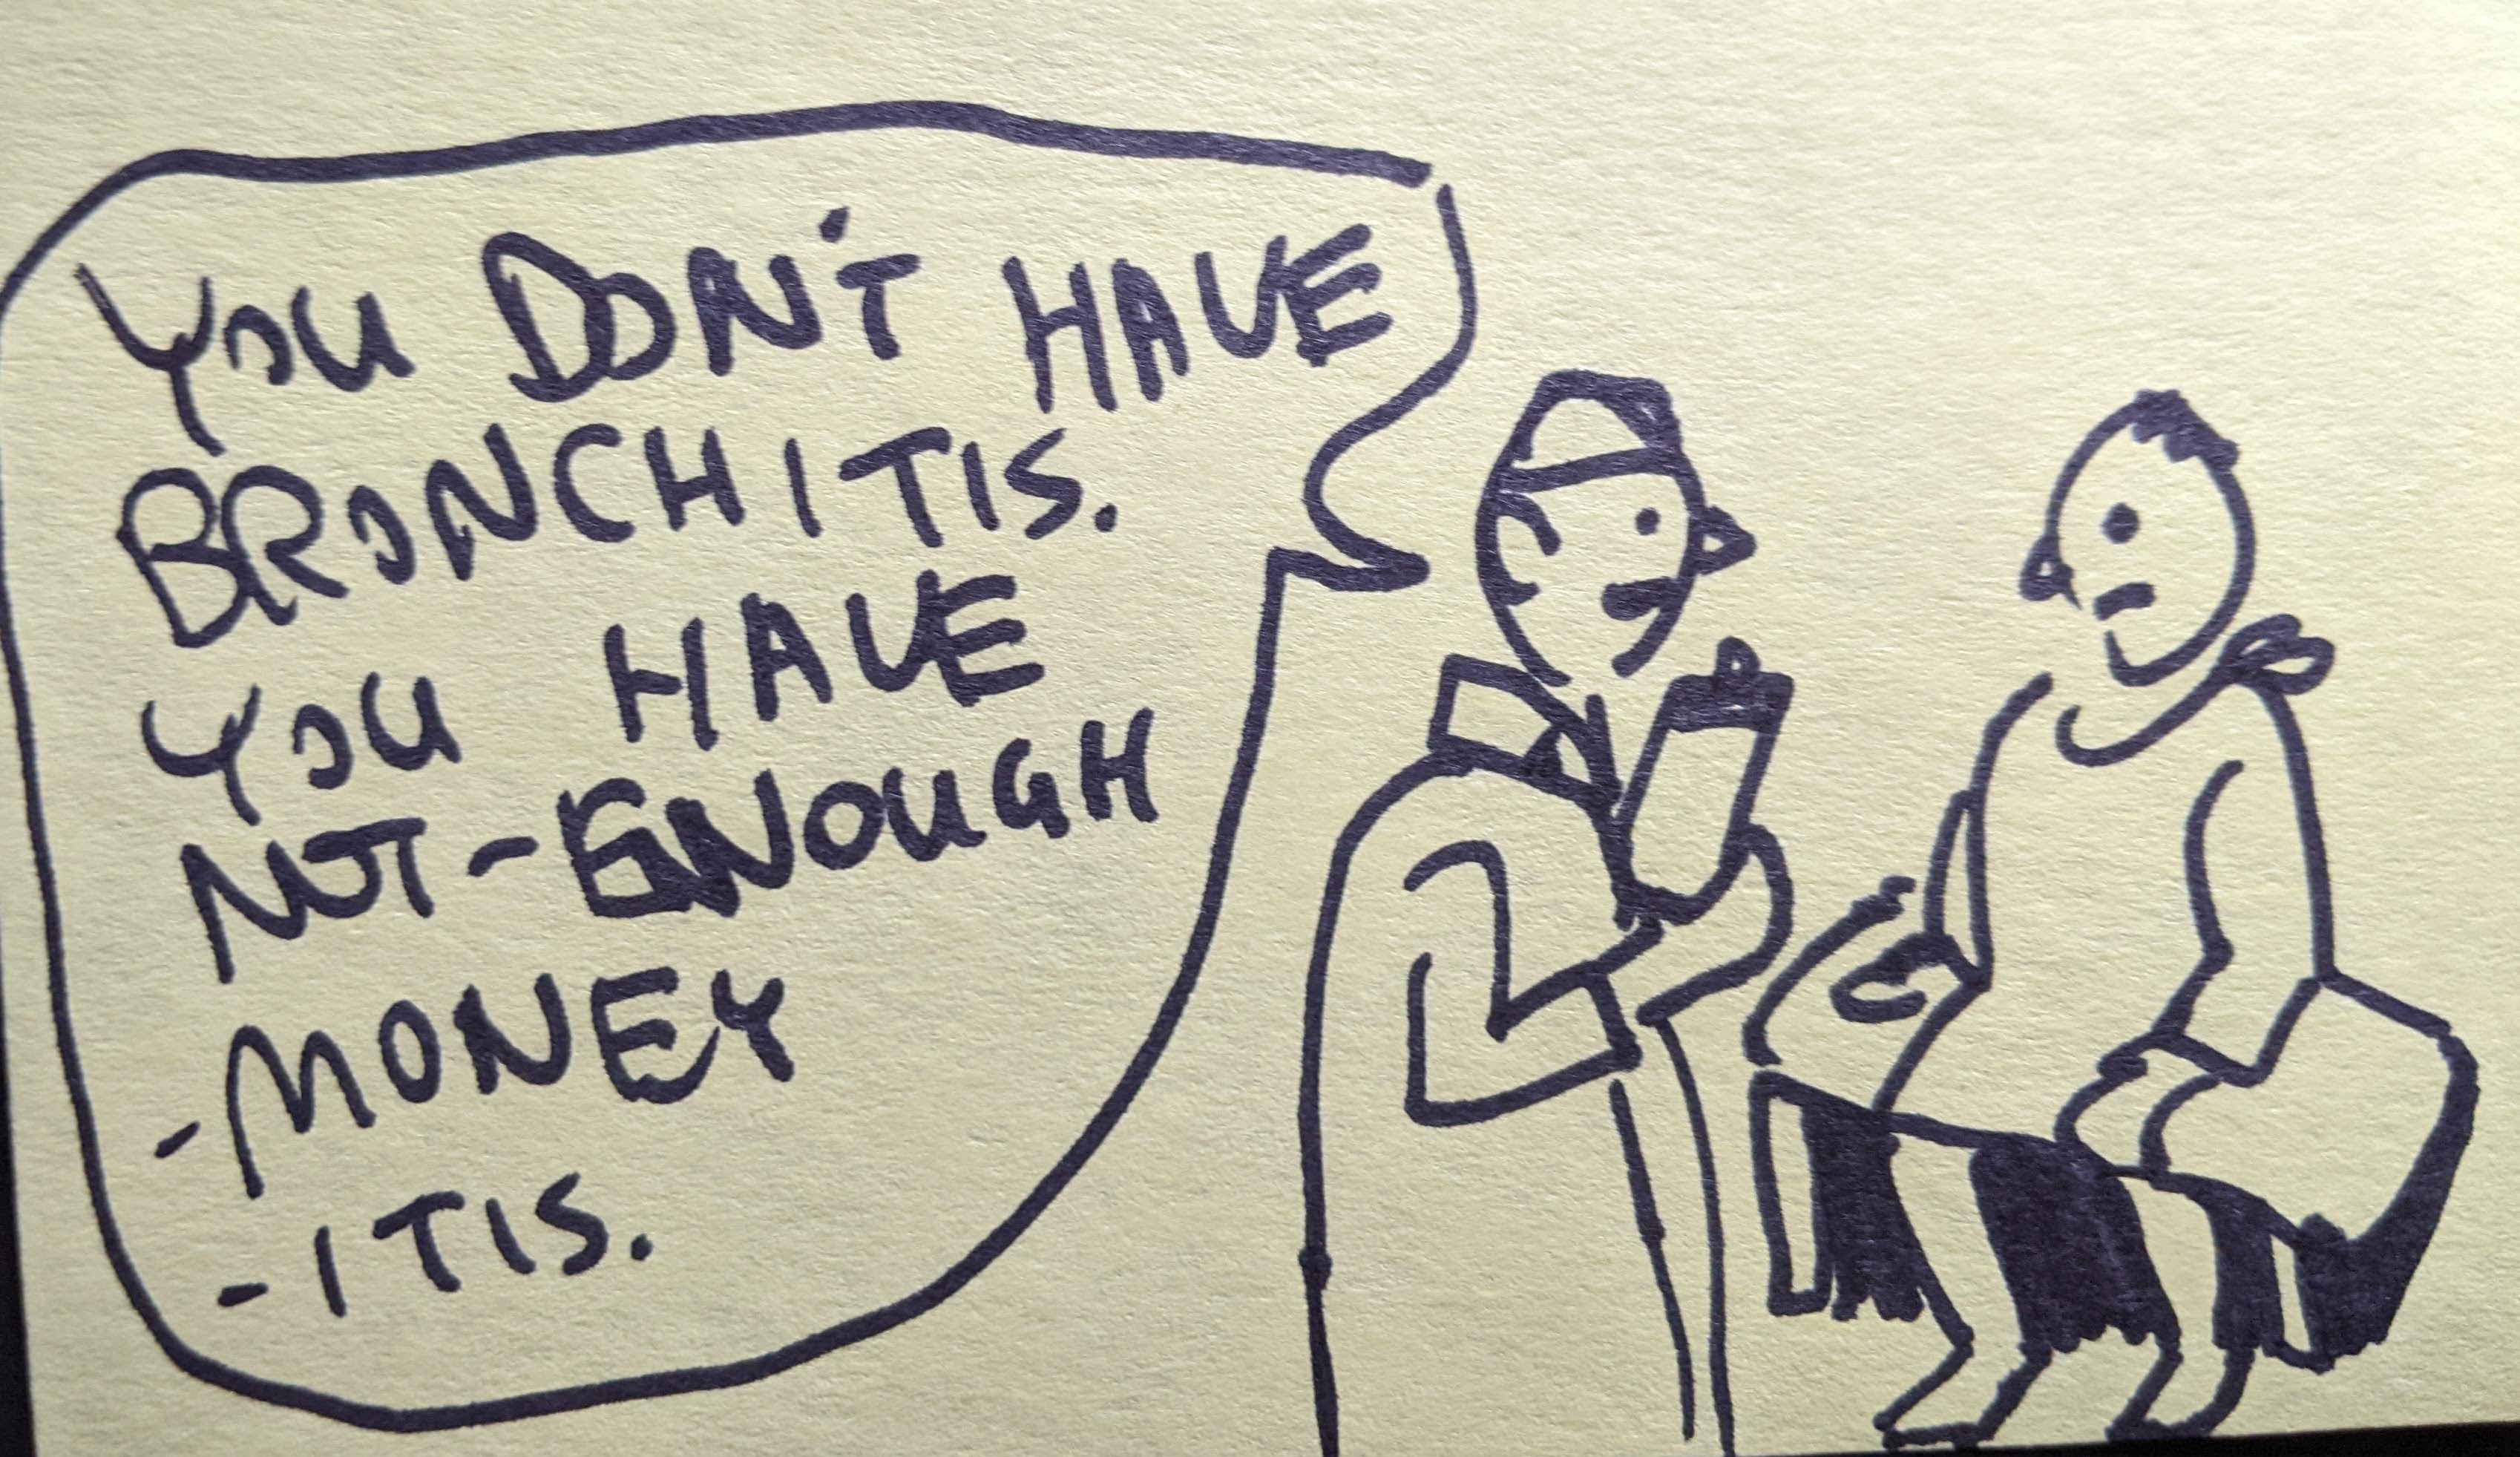 YOU DON'T HAVE
BRONCHITIS.
YOU HAVE
NOT-ENOUGH
-MONEY
-ITIS.